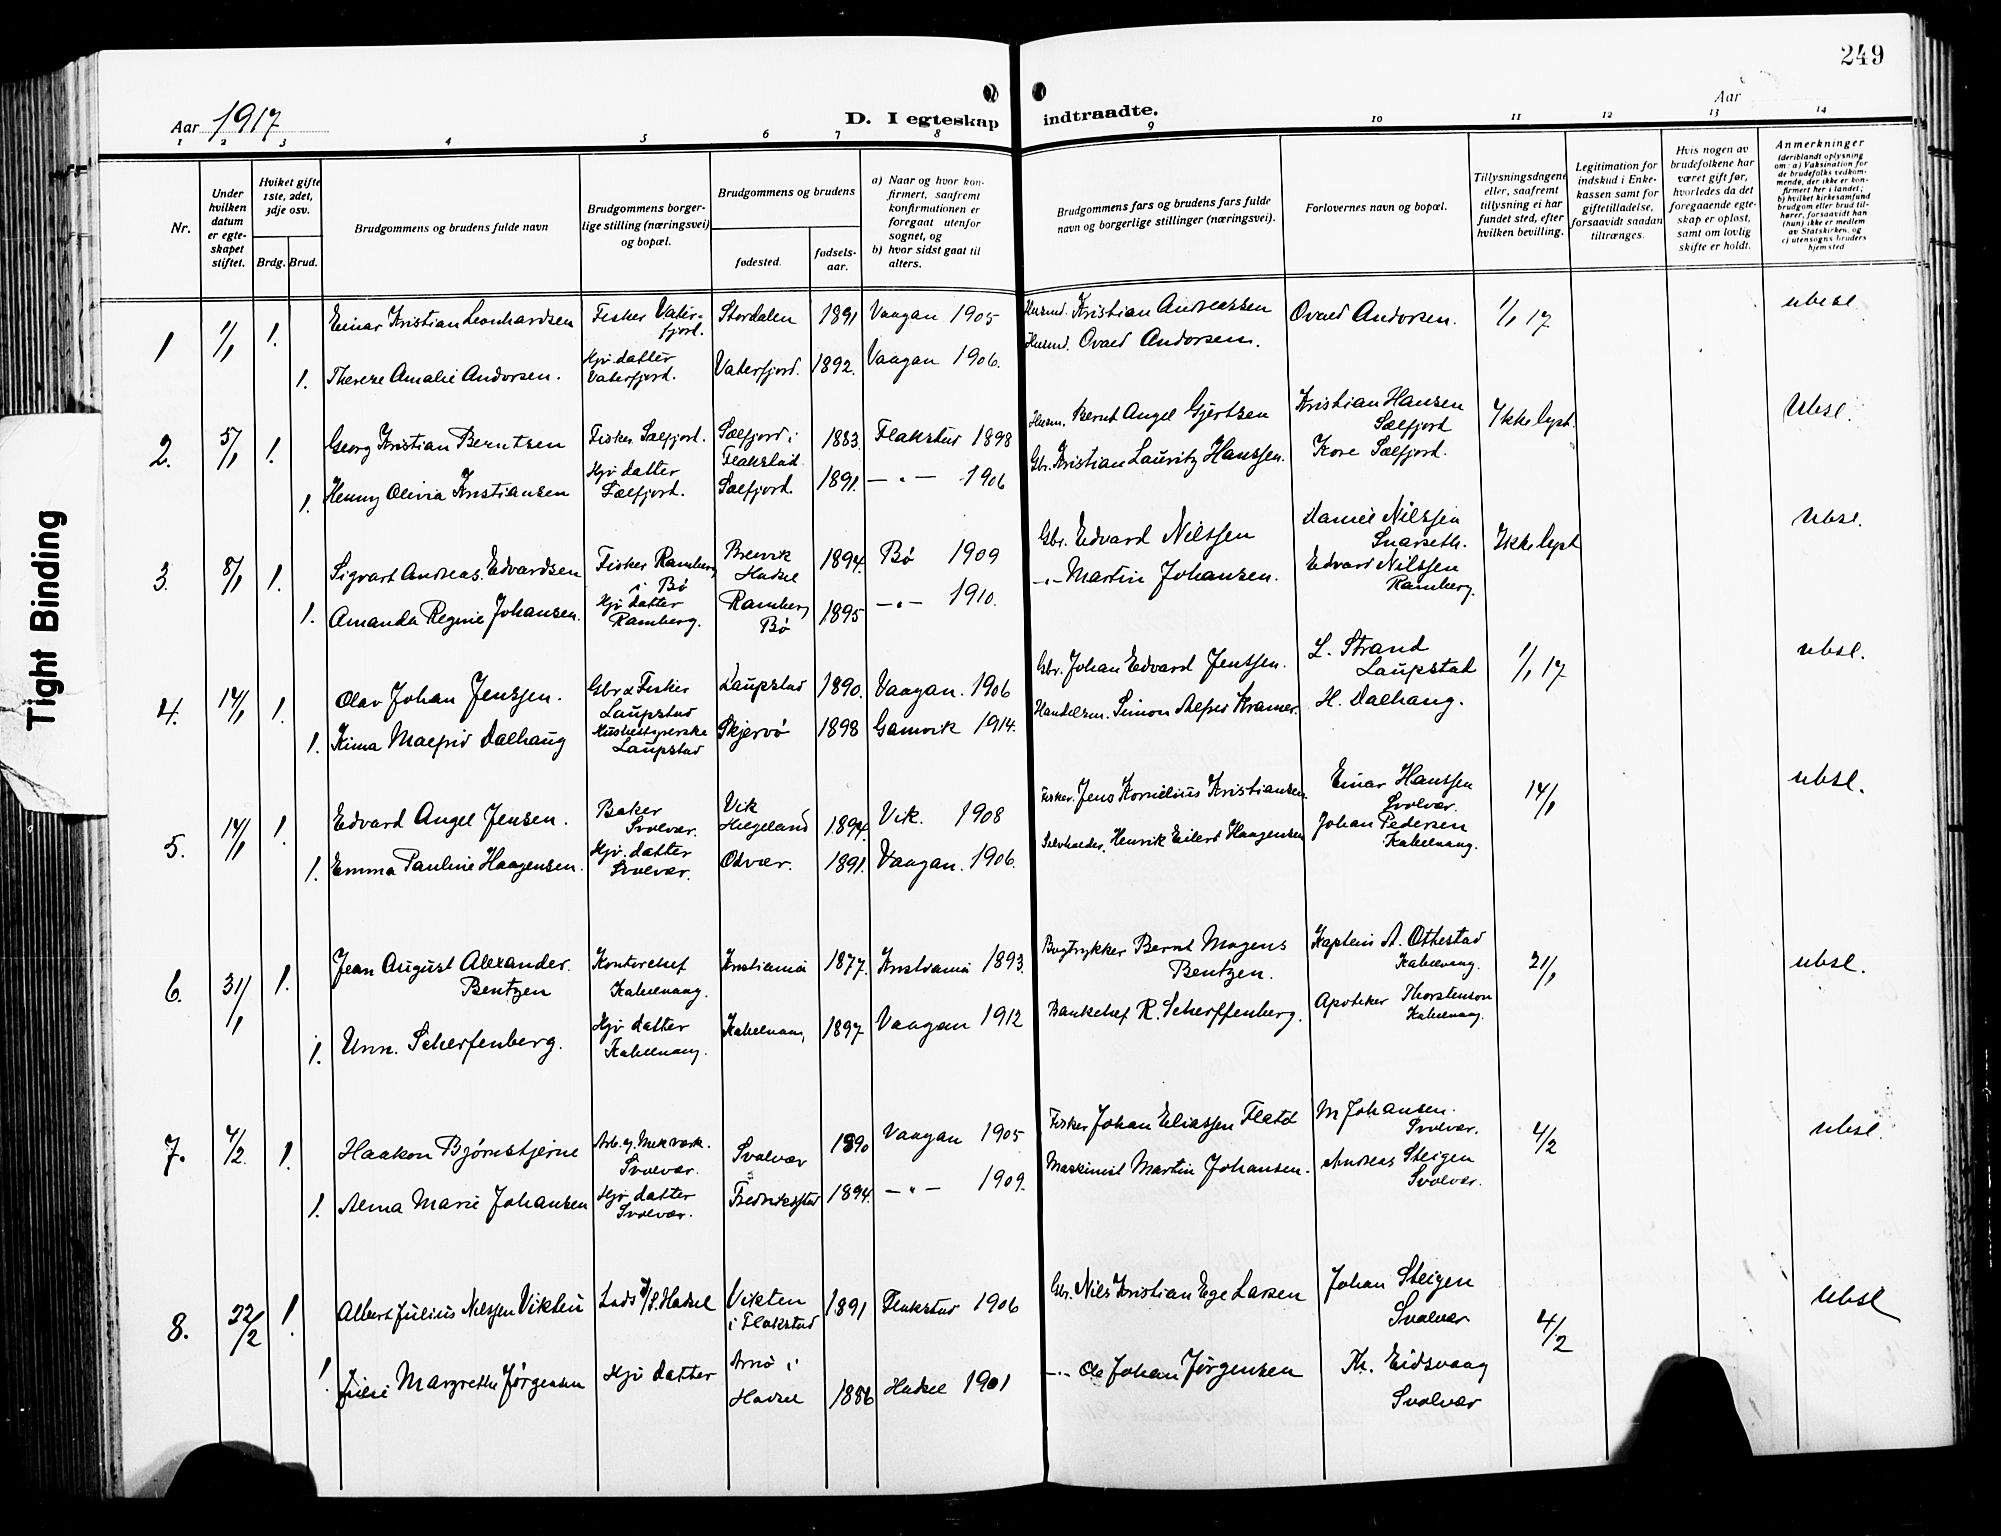 249
Aar 1917
D. I egteskap indtraadte.
Aar
1 2 3 4 5 6 7 8 9 10 11 12 13 14
Nr.
Under hvilken datum er egteskapet stiftet.
Hviket gifte 1ste, 2det, 3dje osv.
Brdg. Brud.
Brudgommens og brudens fulde navn
Brudgommens borgerlige stilling (næringsvei) og bopæl.
Brudgommens og brudens
fødested.
fødselsaar.
a) Naar og hvor konfirmert, saafremt konfirmationen er foregaat utenfor sognet, og
b) hvor sidst gaat til alters.
Brudgommens fars og brudens fars fulde navn og borgerlige stillinger (næringsvei).
Forlovernes navn og bopæl.
Tillysningsdagene eller, saafremt tillysning ei har fundet sted, efter hvilken bevilling.
Legitimation for indskud i Enkekassen samt for giftetilladelse, forsaavidt saadan tiltrænges.
Hvis nogen av brudefolkene har været gift før, hvorledes da det foregaaende egteskap er opløst, samt om lovlig skifte er holdt.
Anmerkninger (deriblandt oplysning om: a) Vaksination for de brudefolks vedkommende, der ikke er konfirmert her i landet; b) hvilket kirkesamfund brudgom eller brud tilhører, forsaavidt han (hun) ikke er medlem av Statskirken, og c) utensogns bruders hjemsted
1 1/1 1. Einar Kristian Leonhardsen Fisker Vaterfjord. Stordalen 1891 Vaagan 1905 Husmd. Kristian Andreassen Ovald Andorsen. 1/1 17 ubesl
1. Therese Amalie Andorsen. Hjv. datter Vaterfjord. Vaterfjord. 1892. Vaagan 1906. Husmd. Ovald Andorsen.
2. 5/1 1. Georg Kristian Berntsen Fisker Selfjord. Selfjord i Flakstad 1883. Flakstad 1898 Husm. Bernt Angel Gjertsen Kristian Hansen Selfjord Ikke lyst. Ubsl.
1. Henny Olivia Kristiansen Hjv. datter Selfjord. Selfjord. 1891. — " — 1906 Gbr. Kristian Lauritz Hanssen. Kore Selfjord.
3. 8/1 1. Sigvart Andreas Edvardsen Fisker Ramberg i Bø Breivik Hadsel 1894. Bø 1909 Gbr. Edvard Nilssen Daniel Nilssen Snarseth. Ikke lyst Ubsl.
1. Amanda Regine Johansen. Hjv. datter Ramberg. Ramberg Bø 1895 — " — 1910. -"- Martin Johansen. Edvard Nilssen Ramberg.
4. 14/1 1. Olav Johan Jenssen. Gbr & Fisker Laupstad Laupstad 1890. Vaagan. 1906 Gbr. Johan Edvard Jenssen. L. Strand Laupstad 1/1 17 ubsl.
1. Kima Malfrid Dalhaug Husbestyrerske Laupstad Skjervø 1898 Gamvik 1914. Handelsm. Simon Alfred Kramer. H. Dalhaug.
5. 14/1 1. Edvard Angel Jensen. Baker Svolvær. Vik Helgeland 1894. Vik. 1908 Fisker. Jens Kornelius Kristiansen Einar Hanssen Svolvær. 14/1 ubsl.
1. Emma Pauline Haagensen. Hjv. datter Svolvær. Odvær. 1891. Vaagan. 1906. Henrik Eilert Haagensen Johan Pedersen Kabelvaag.
6. 31/1 1. Jean August Alexander Bentzen Kontorchef Kabelvaag. Kristiania 1877. Kristiania 1893. Bogtrykker Bernt Mogens Bentzen. Kaptein A. Ottestad Kabelvaag. 21/1 ubsl.
1. Unn. Scherfenberg. Hjv. datter Kabelvaag. Kabelvaag 1897 Vaagan 1912 Bankchef R. Scherffenberg. Apoteker Thorstenson Kabelvaag.
7. 4/2 1. Haakon Bjørnstjerne Arb. v/ Mek verk. Svolvær. Svolvær 1890 Vaagan 1905 Fisker Johan Eliassen Flatø M Johansen. Svolvær. 4/2 ubsl.
1. Alma Marie Johansen Hjv. datter Svolvær. Fredrikstad 1894. — " — 1909. Maskinist Martin Johansen. Andreas Steigen Svolvær.
8. 22/2 1. Albert Julius Nilssen Vikten Lods D/S. Hadsel Vikten i Flakstad 1891 Flakstad 1906 Gbr. Nils Kristian Ege Larsen Johan Steigen Svolvær 4/2 ubsl
1. Julie Margrethe Jørgensen Hjv datter Arnø i Hadsel 1886 Hadsel 1901 -"- Ole Johan Jørgensen Th. Eidsvaag Svolvær
Tight Binding